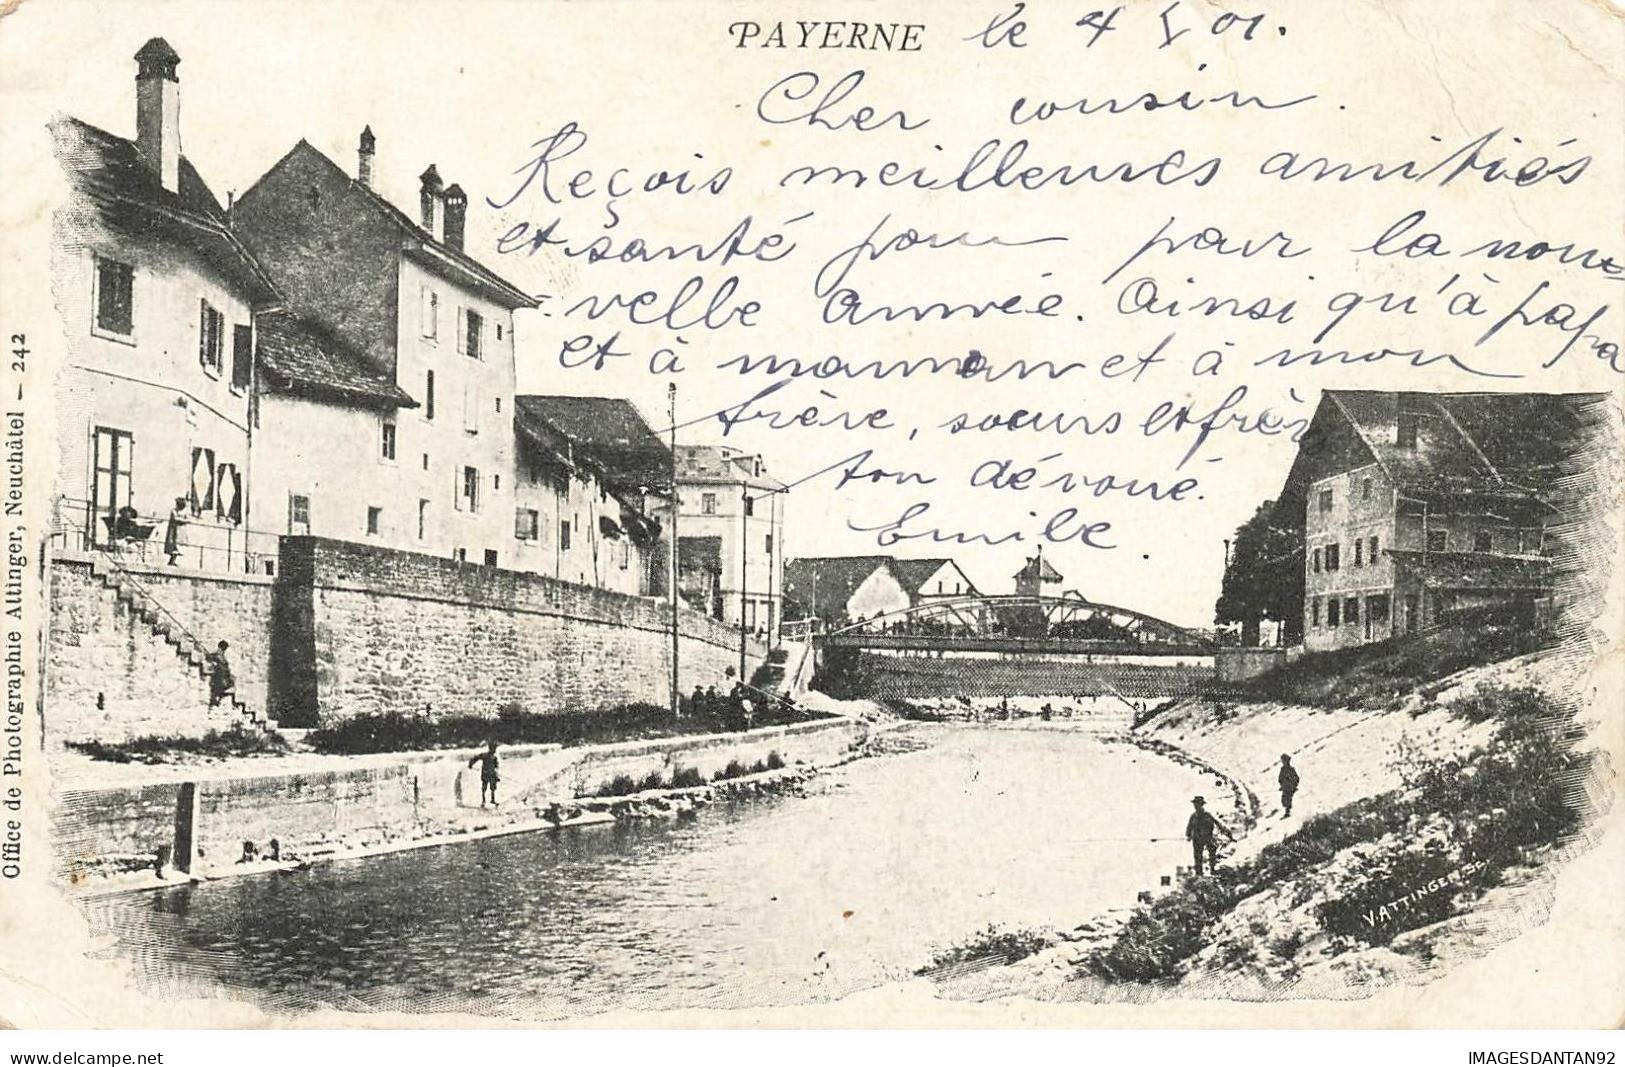 PAYERNE le 4 I 01.
Cher cousin.
Reçois meilleures amitiés
et santé pour pour la nou=
-velle année. Ainsi qu'à papa
et à maman et à mon
frère, sœurs et frèr
ton dévoué.
Emile.
Office de Photographie Attinger, Neuchâtel — 242
V. ATTINGER SC.
www.delcampe.net
IMAGESDANTAN92